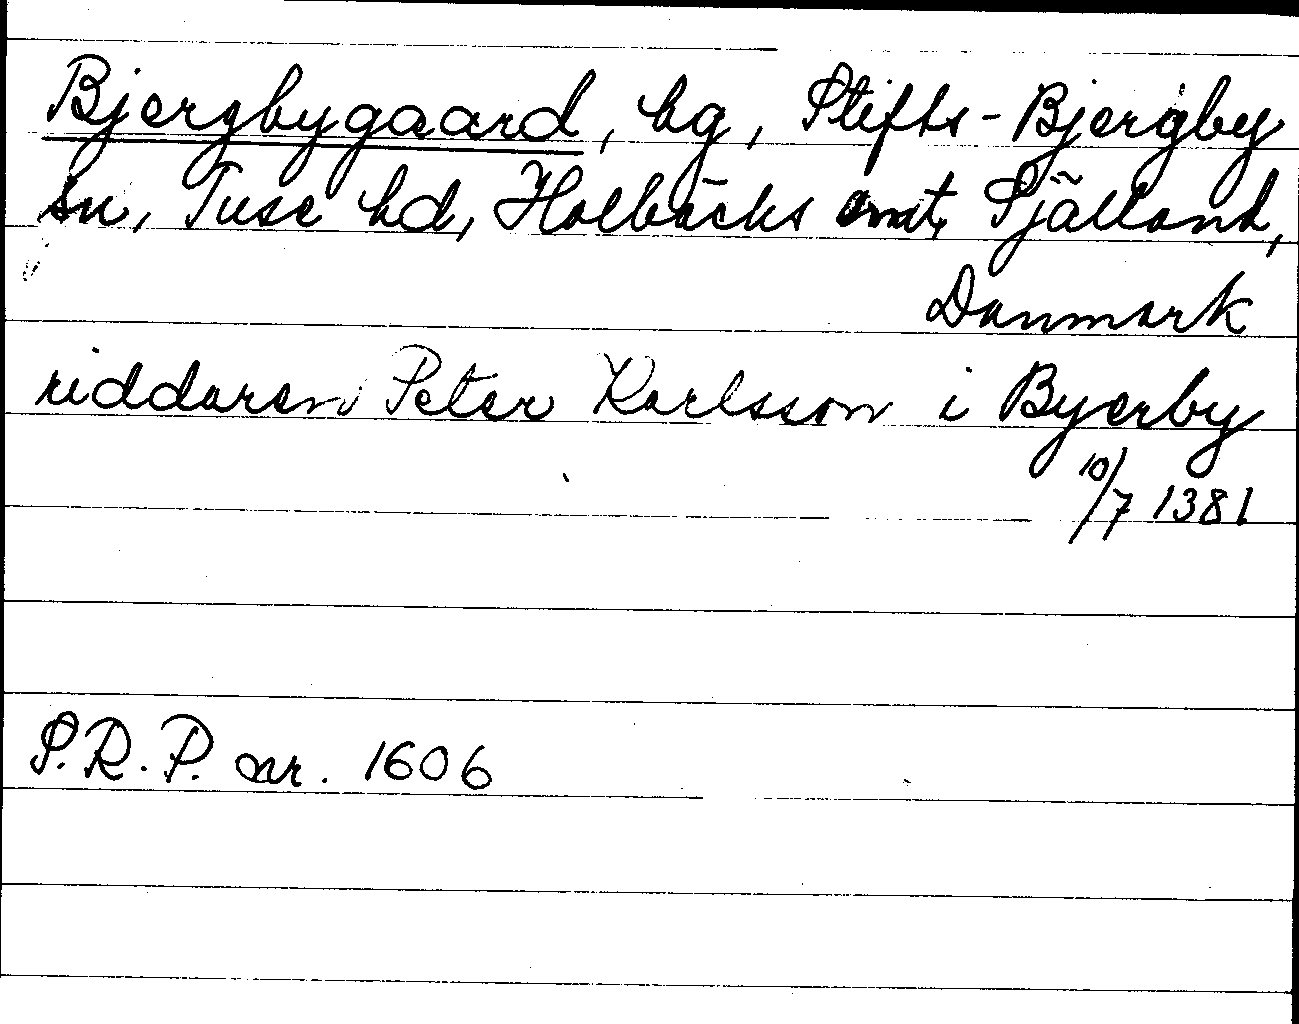 Bjergbygaard, hg, Stifts-Bjergby
sn, Tuse hd, Holbäcks amt, Själland,
Danmark
riddaren Peter Karlsson i Byerby
10/7 1381
S.R.P. nr. 1606